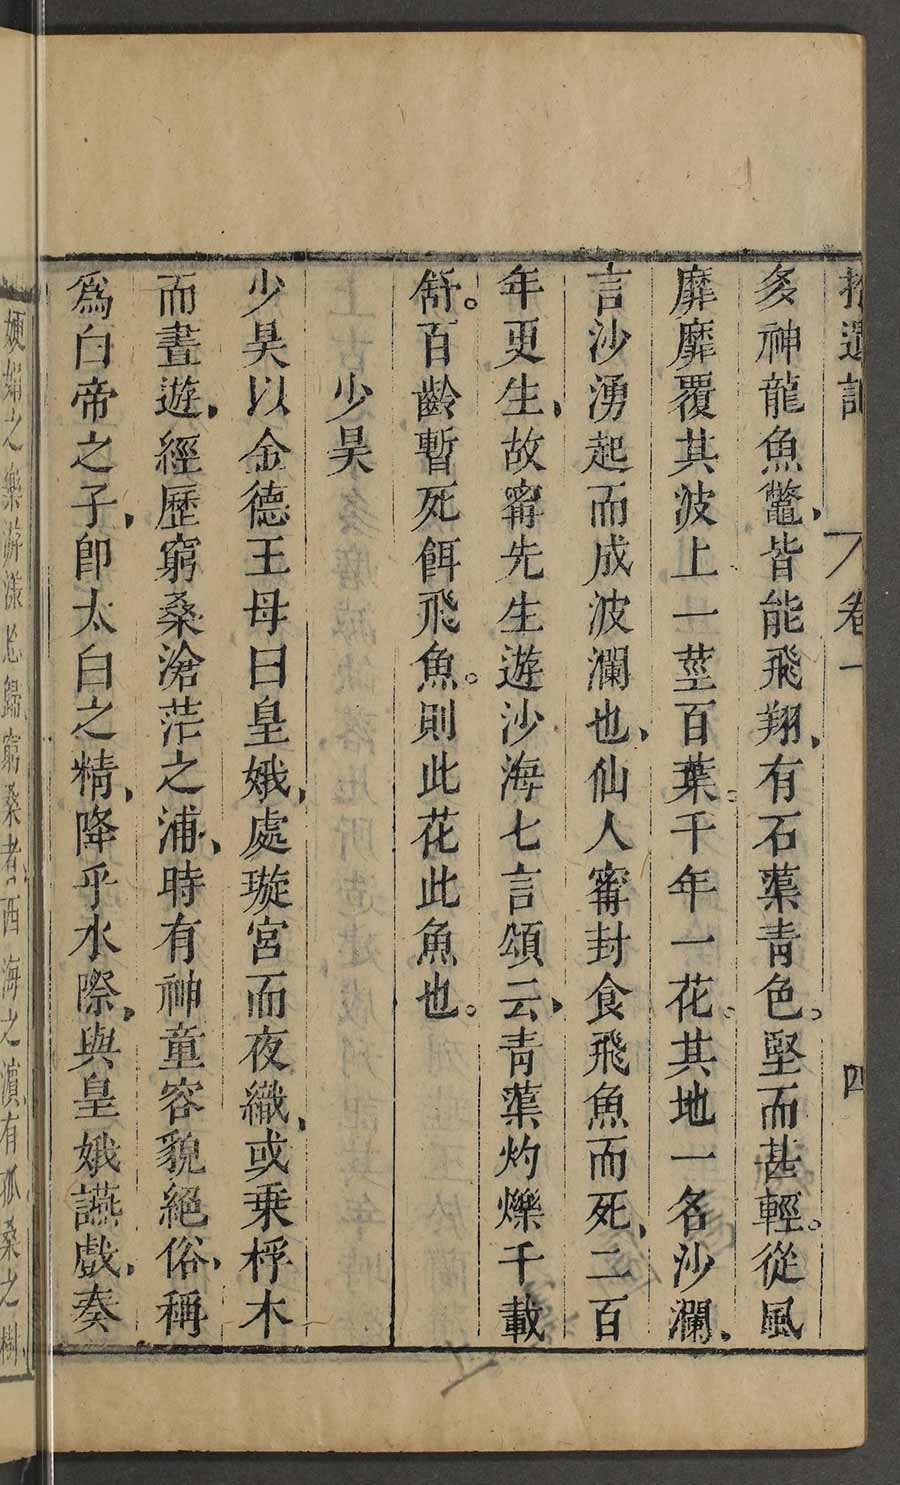 拾遺記 卷一 四
多神龍魚鼈皆能飛翔有石蕖青色堅而甚輕從風
靡靡覆其波上一莖百葉千年一花其地一名沙瀾
言沙湧起而成波瀾也仙人甯封食飛魚而死二百
年更生故甯先生遊沙海七言頌云青蕖灼爍千載
舒百齡暫死餌飛魚則此花此魚也
少昊
少昊以金德王母曰皇娥處璇宮而夜織或乗桴木
而晝遊經歷窮桑滄茫之浦時有神童容貌絕俗稱
爲白帝之子卽太白之精降乎水際與皇娥讌戲奏
㛹娟之樂游漾忘歸窮桑者西海之濱有孤桑之樹